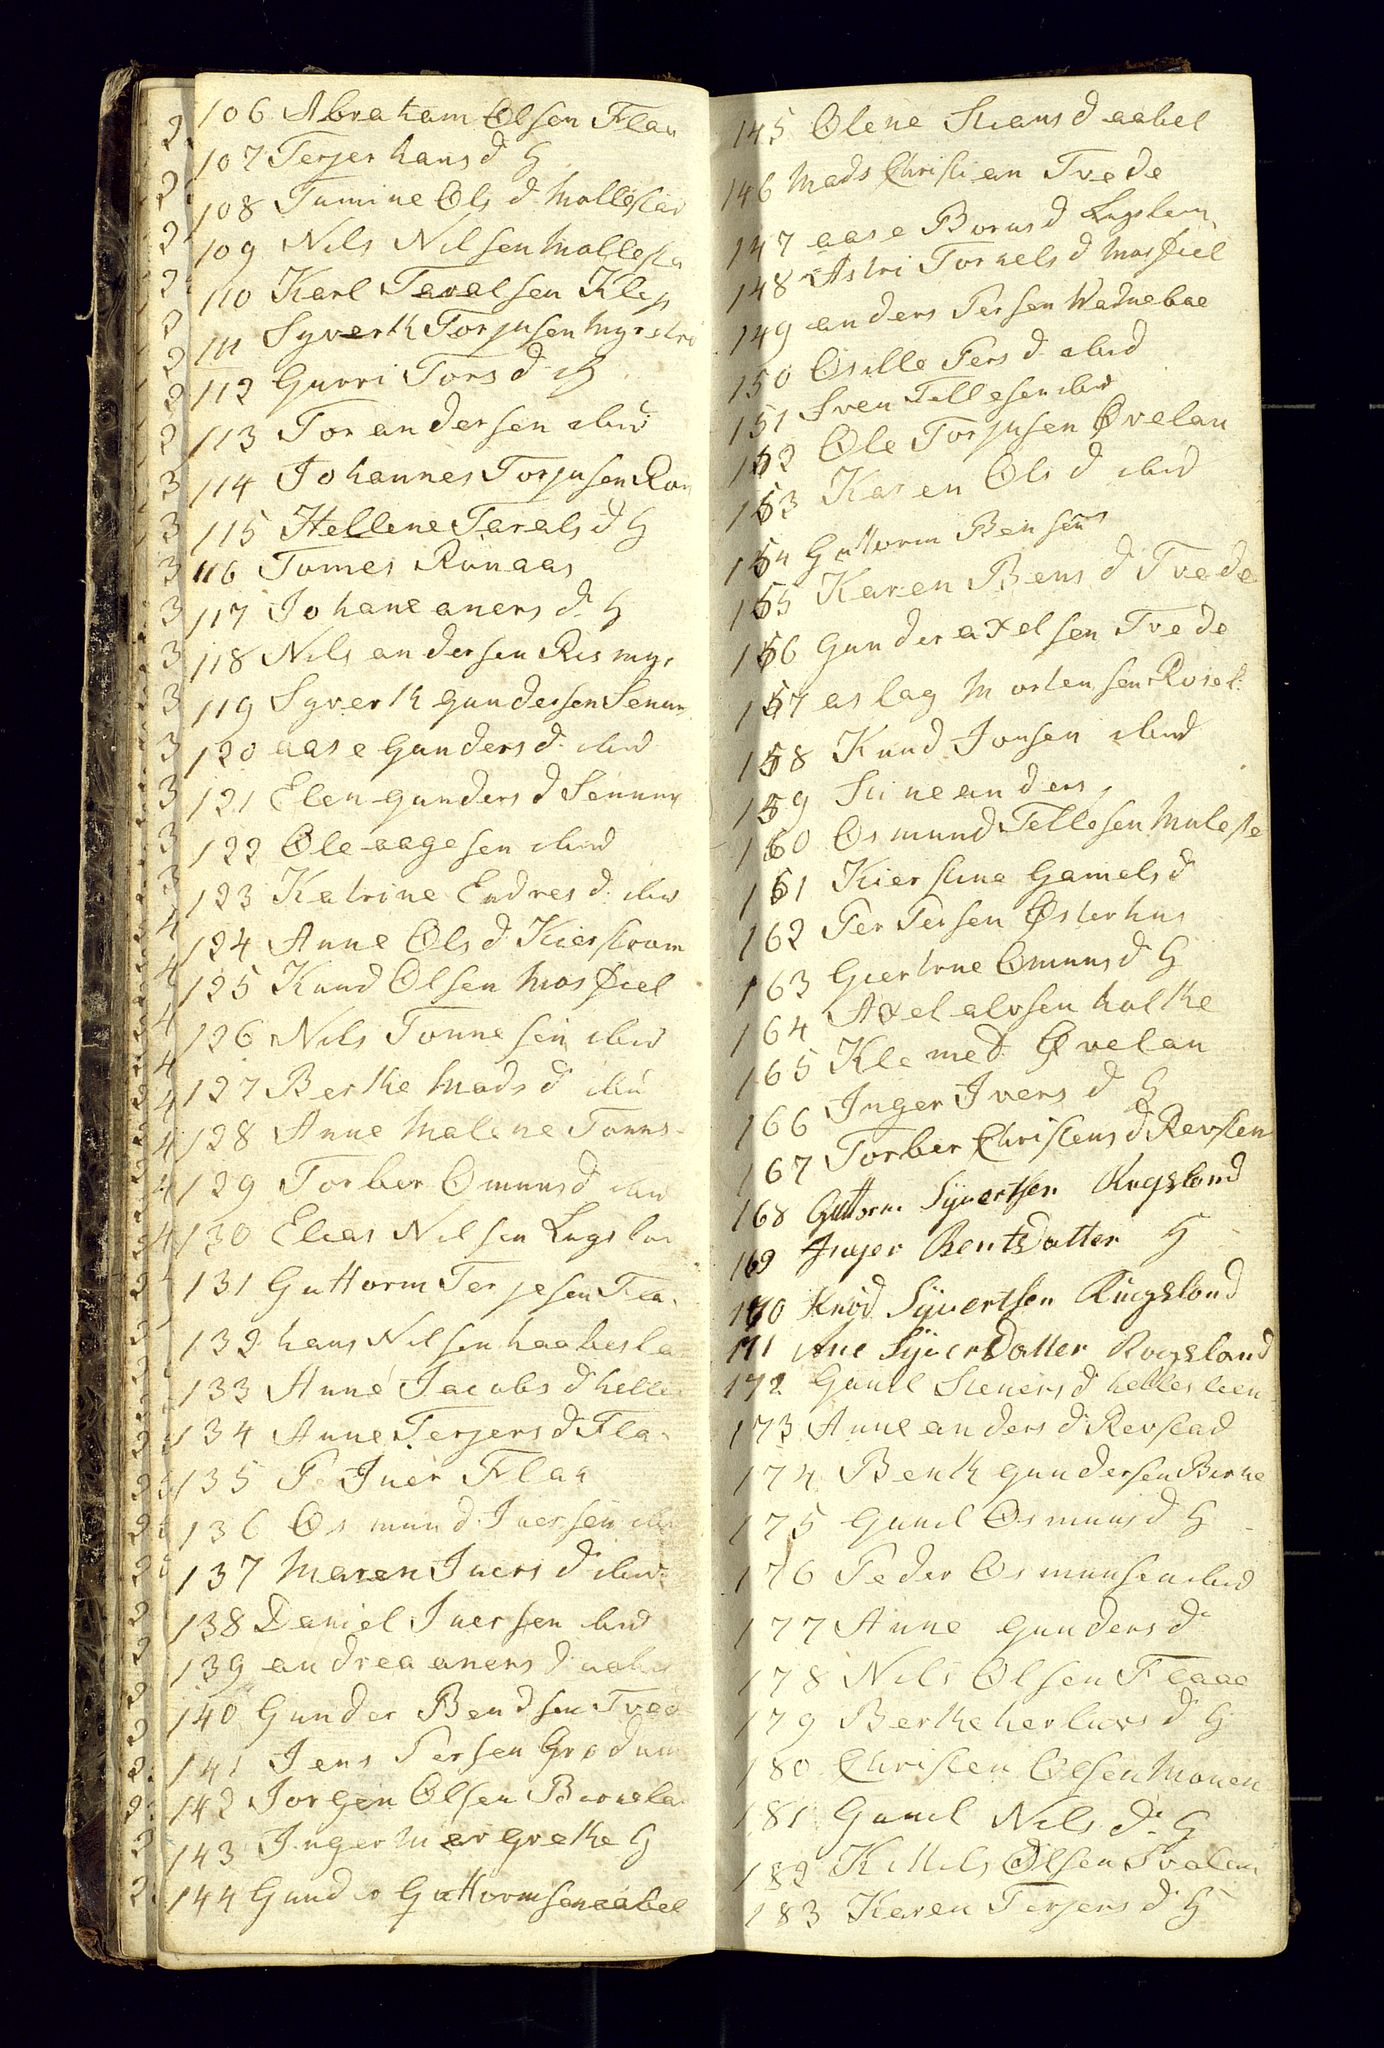 106 Abraham Olsen Flaa
107 Terjer hans d H
108 Tamine Ols d Mollestad
109 Nils Nilsen Mollesta
110 Karl Taralsen Klep
111 Syverth Torjusen Myrstrø
112 Gurri Tors d H
113 Tor andersen ibid
114 Johannes Torjusen Røn
115 Hellene Tarals d H
116 Tomes Rønaas
117 Johane aners d H
118 Nils andersen Rismyr
119 Syverth gundersen Senum
120 aase Gunders d ibid
121 Elen gunders d Senum
122 Ole aagesen ibid
123 Katrine Endres d ibid
124 Anne Ols d Kierstrøm
125 Knud Olsen Mosfiel
126 Nils Tønnesen ibid
127 Berthe Mads d ibid
128 Anne Malene Tønns
129 Torber Omuns d ibid
130 Elias Nilsen
131 Guttorm Terjesen Fla
132 hans Nilsen haabesla
133 Anne Jacobs d helle
134 Anne Terjers d Fla
135 P Iuer Flaa
136 Osmund Iuersen ibid
137 Maren Iuers d ibid
138 Daniel Iuersen ibid
139 andrea aners d aabel
140 Gunder Bendsen Tved
141 Jens Persen Grødum
142 Jørgen Olsen Birkela
143 Inger Margrethe H
144 Gunder Guttormsen aabel
145 Olene Stians d aabel
146 Mads Christian Tvede
147 aase Børus d
148 Astri Torkels d Mosfiel
149 anders Persen
150 Osille Pers d ibid
151 Sven Tellesen ibid
152 Ole Torjusen Øvelan
153 Karen Ols d ibid
154 Guttorm Bensen
155 Karen Bens d Tvede
156 Gunder axelsen Tvede
157 aslag Mortensen
158 Knud Jonsen ibid
159 Stine anders
160 Osmund Tellesen Muleste
161 Kierstine Gamels d
162 Per Persen Østerhus
163 Giertrue Omuns d H
164 Axel alvsen holthe
165 Klemed Øvelan
166 Inger Ivers d H
167 Torber Christens d Revsten
168 Guttorm Syvertsen Rugsland
169 Inger BentsDatter H
170 Knud Syvertsen Rugsland
171 Ane SyverDatter Rugsland
172 Gunil Steners d helleslien
173 Anne anders d Revstad
174 Benth gundersen Birke
175 Gunil Osmuns d H
176 Peder Osmunsen ibid
177 Anne gunders d
178 Nils Olsen Flaae
179 Berthe herluvs d H
180 Christen Olsen Monen
181 Gunil Nils d H
182 Kittils Olsen Svalan
183 Karen Terjers d H